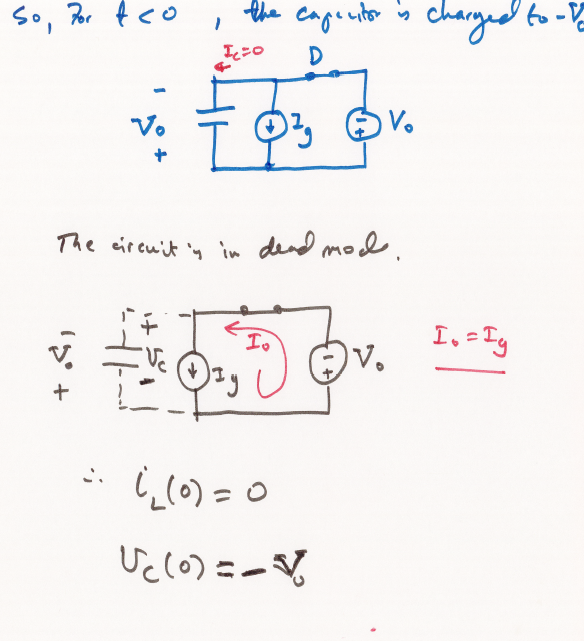 So, For t < 0 , the capacitor is charged to -V₀
I_C=0
D
-
V₀
+
I_g
- +
V₀
The circuit is in dead mode.
-
V₀
+
+
V_C
-
I_g
I₀
- +
V₀
I₀ = I_g
∴ i_L(0) = 0
V_C(0) = -V₀